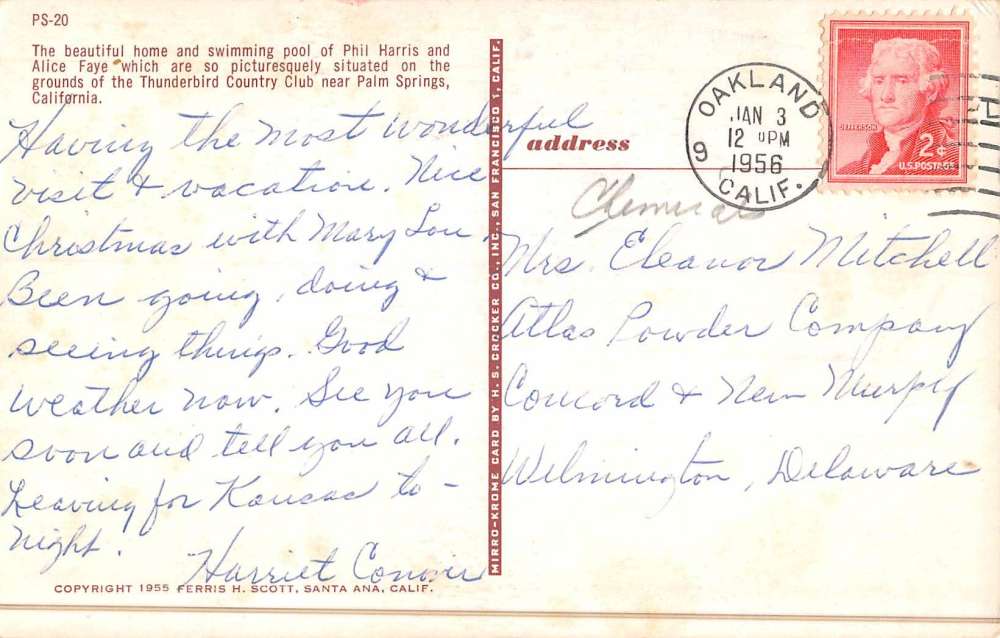 PS-20
The beautiful home and swimming pool of Phil Harris and
Alice Faye which are so picturesquely situated on the
grounds of the Thunderbird Country Club near Palm Springs,
California.
Having the most wonderful
visit & vacation. Nice
Christmas with Mary Lou.
Been going, doing &
seeing things. Good
weather now. See you
soon and tell you all.
Leaving for Kansas to-
night.
Harriet
COPYRIGHT 1955 FERRIS H. SCOTT, SANTA ANA, CALIF.
MIRRO-KROME CARD BY H. S. CROCKER CO., INC., SAN FRANCISCO 1, CALIF.
address
OAKLAND
JAN 3
12 PM
1956
CALIF.
9
JEFFERSON
2¢
U.S. POSTAGE
Chemicals
Mrs. Eleanor Mitchell
Atlas Powder Company
Concord & New
Wilmington, Delaware